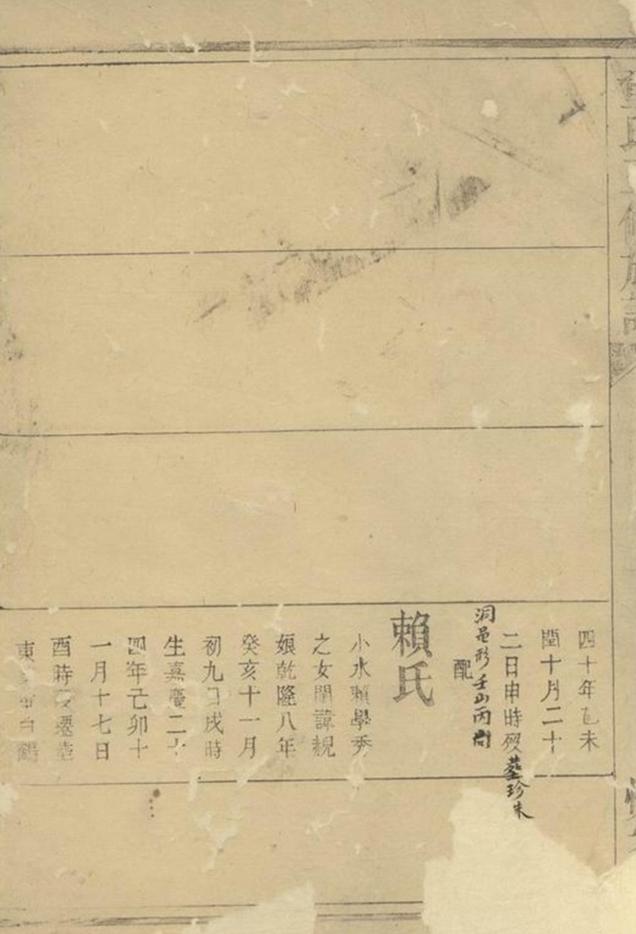 氏修族譜
四十年乙未
閏十月二十
二日申時歿葬珍朱
洞形壬山丙向
配
賴氏
小水賴學秀
之女閨諱親
娘乾隆八年
癸亥十一月
初九日戌時
生嘉慶二十
四年己卯十
一月十七日
酉時歿遷葬
東白